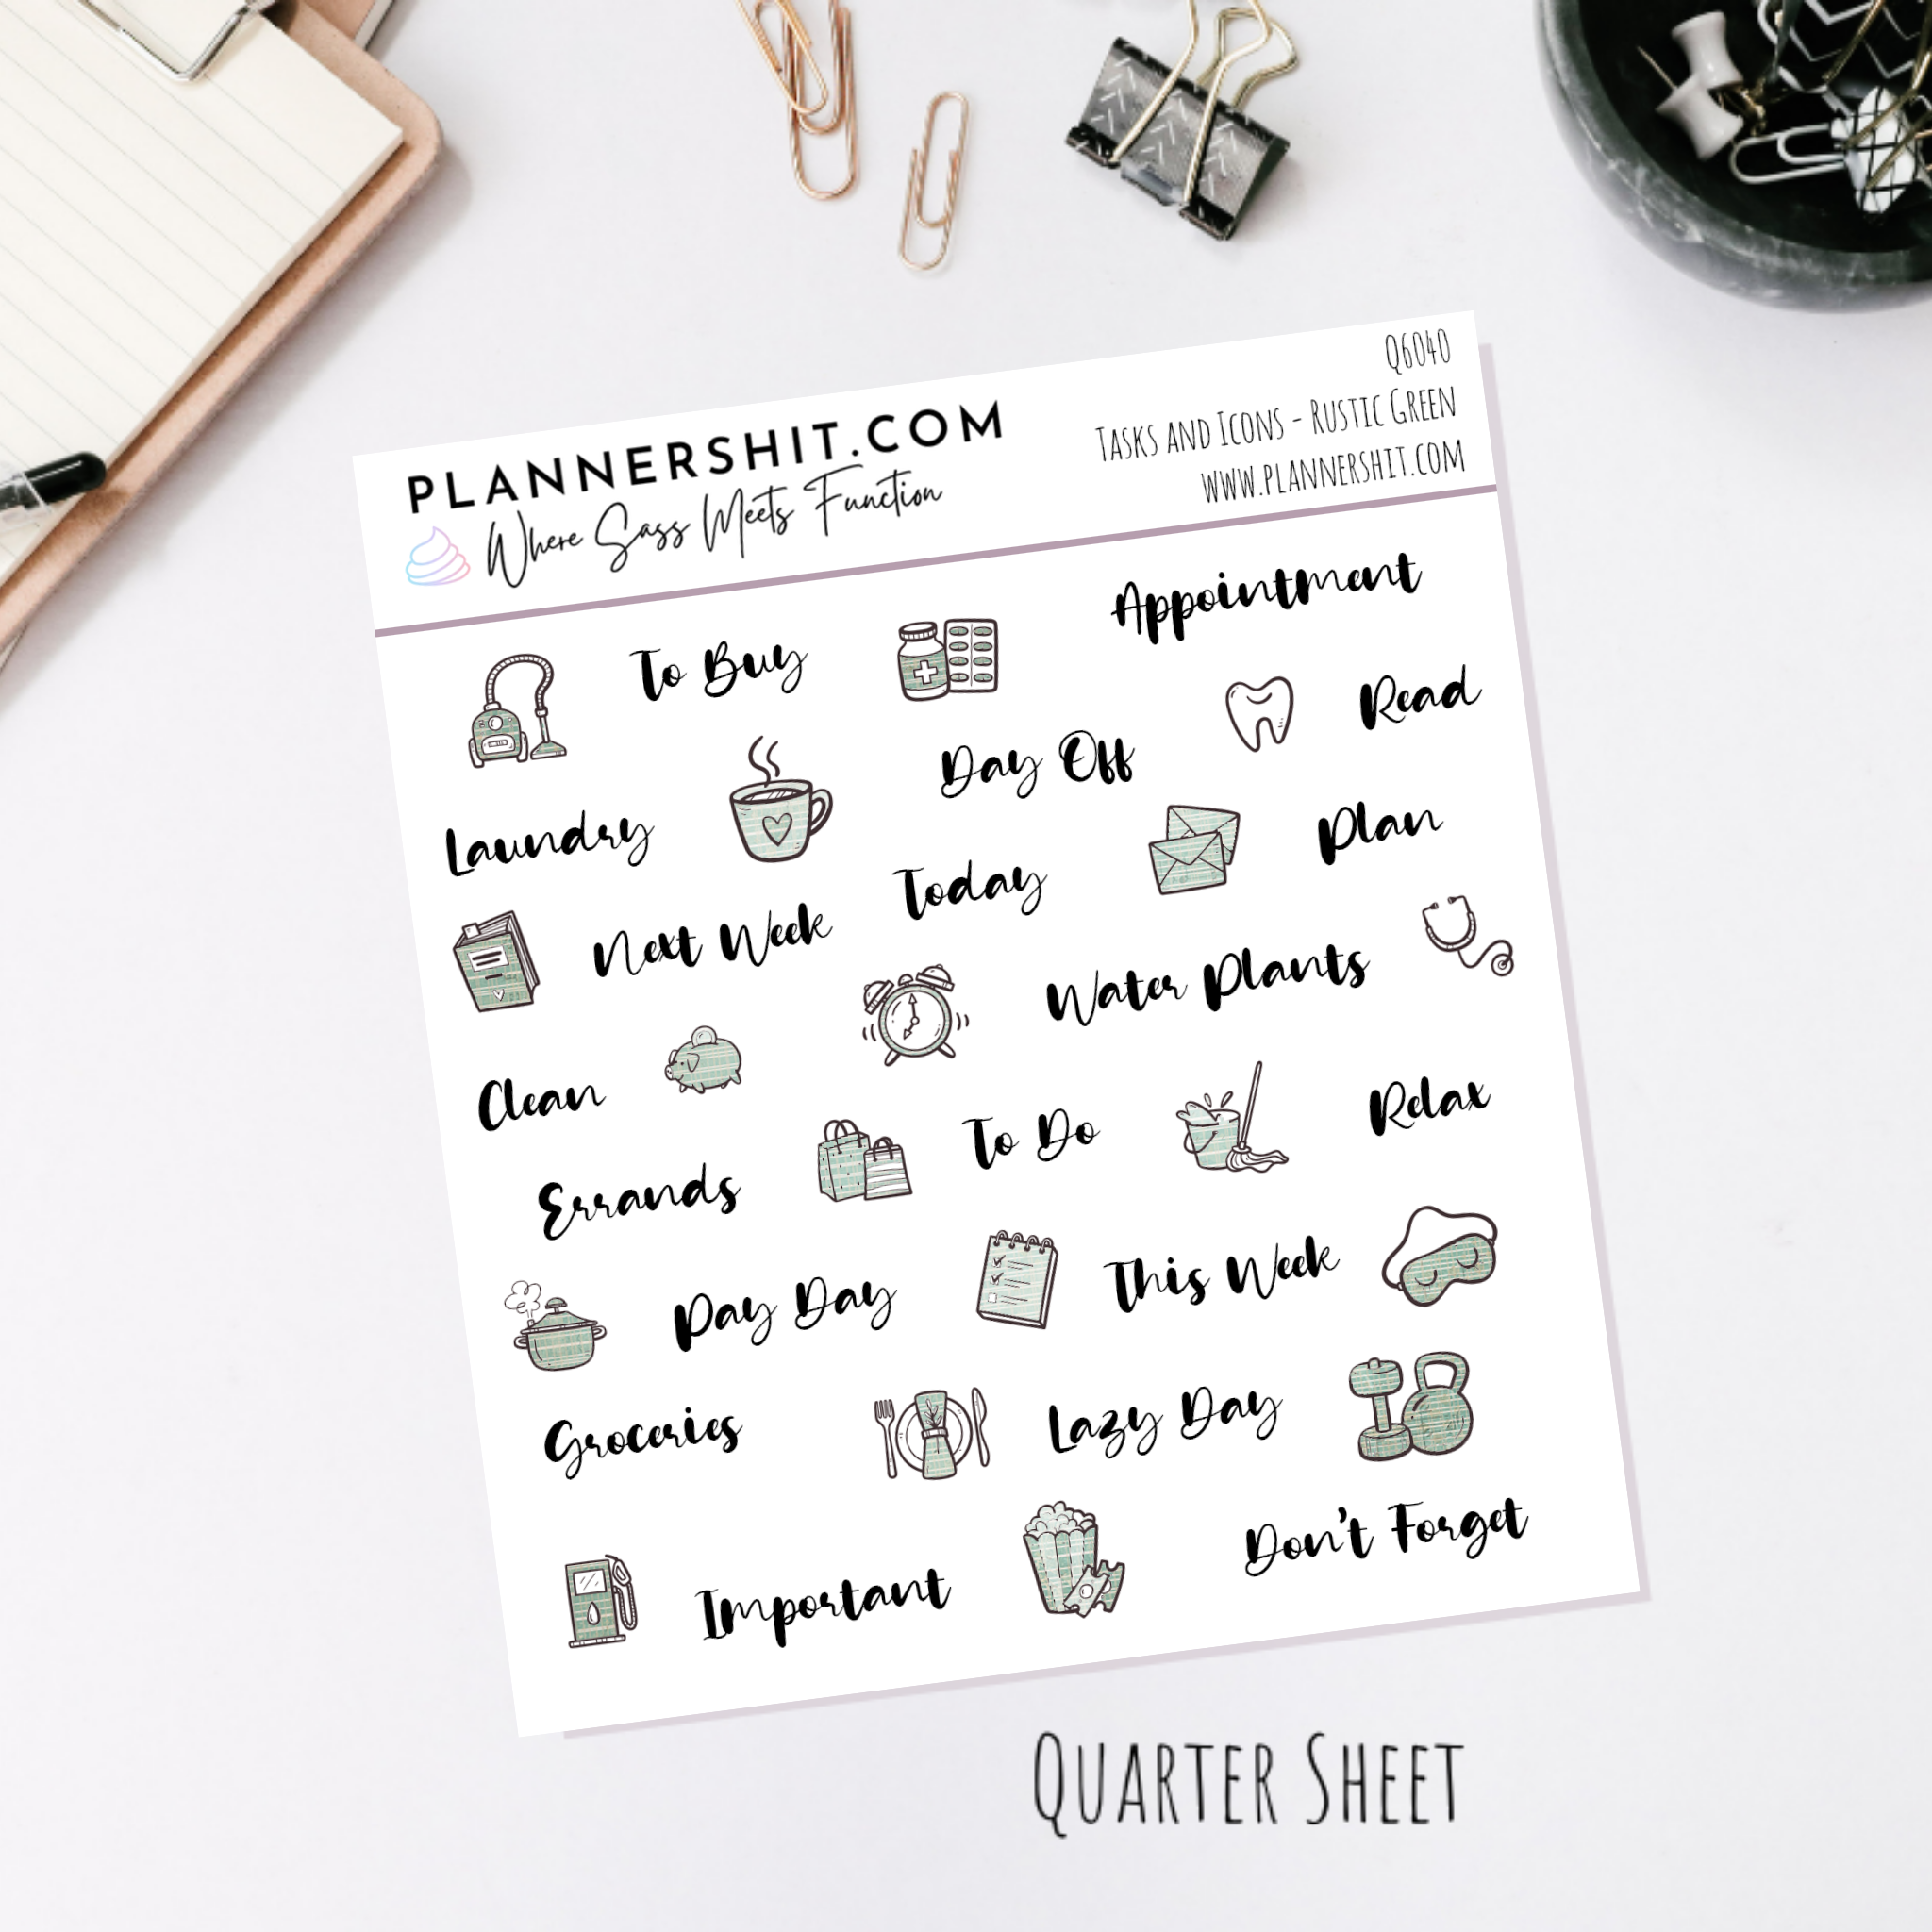 PLANNERSHIT.COM
Where Sass Meets Function
Q6040
Tasks and Icons - Rustic Green
www.plannershit.com
To Buy
Appointment
Read
Day Off
Laundry
Plan
Today
Next Week
Water Plants
Clean
To Do
Relax
Errands
This Week
Pay Day
Lazy Day
Groceries
Don't Forget
Important
Quarter Sheet